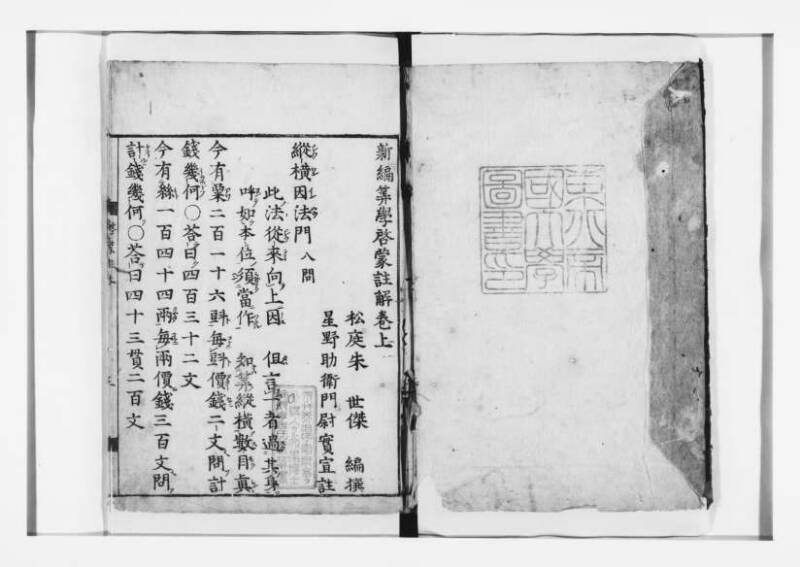 新編算學啓蒙註解卷上
松庭朱 世傑 編撰
星野助衛門尉實宣註
縱橫因法門 八問
此法從來向上因 但言十者過其身
呼如本位須當作 知算縱橫數目眞
今有粟二百一十六㪷每㪷價錢二文問計
錢幾何〇荅曰四百三十二文
今有絲一百四十四兩每兩價錢三百文問
計錢幾何〇荅曰四十三貫二百文
東北帝
國大學
圖書印